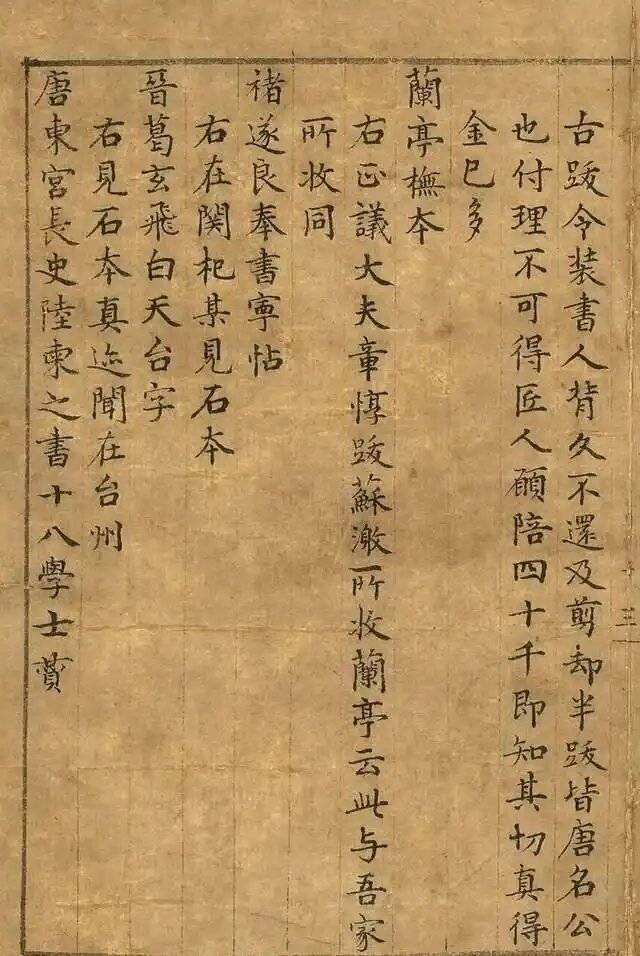 古跋令装書人背久不還及剪却半跋皆唐名公
也付理不可得匠人願陪四十千即知其切真得
金已多
蘭亭橅本
右正議大夫章惇跋蘇澈所收蘭亭云此与吾家
所收同
褚遂良奉書寧帖
右在関杞某見石本
晉葛玄飛白天台字
右見石本真迹聞在台州
唐東宮長史陸柬之書十八學士賛
三